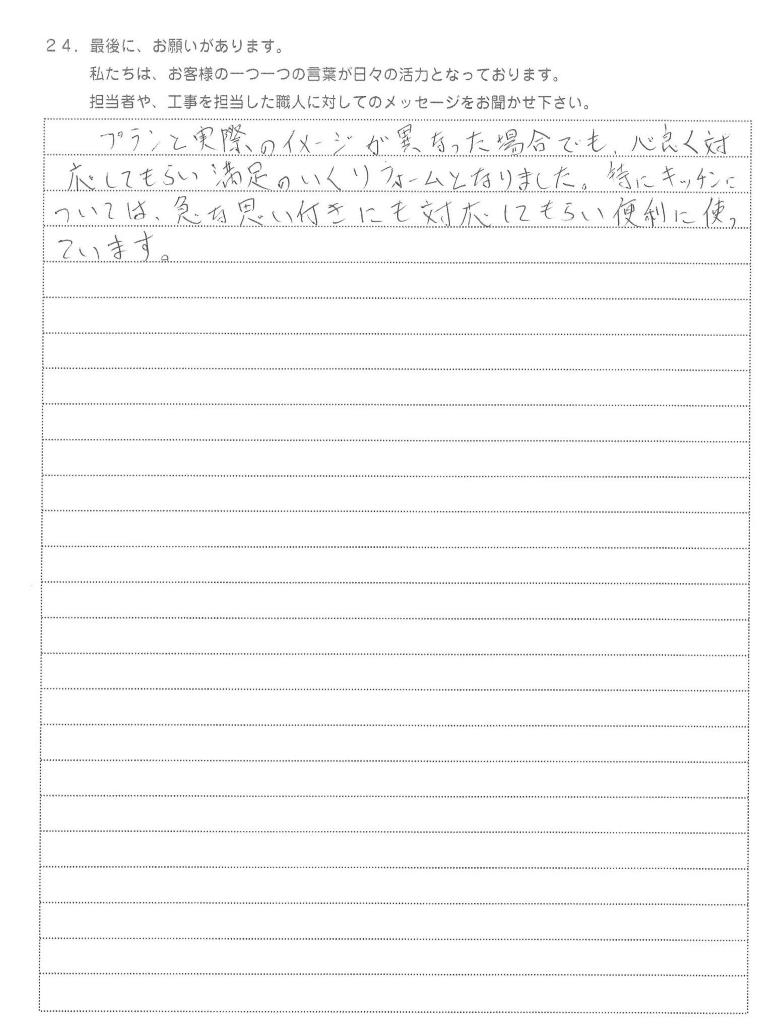 24．最後に、お願いがあります。
私たちは、お客様の一つ一つの言葉が日々の活力となっております。
担当者や、工事を担当した職人に対してのメッセージをお聞かせ下さい。
プランと実際のイメージが異なった場合でも、心良く対
応してもらい満足のいくリフォームとなりました。特にキッチンに
ついては、急な思い付きにも対応してもらい便利に使っ
ています。